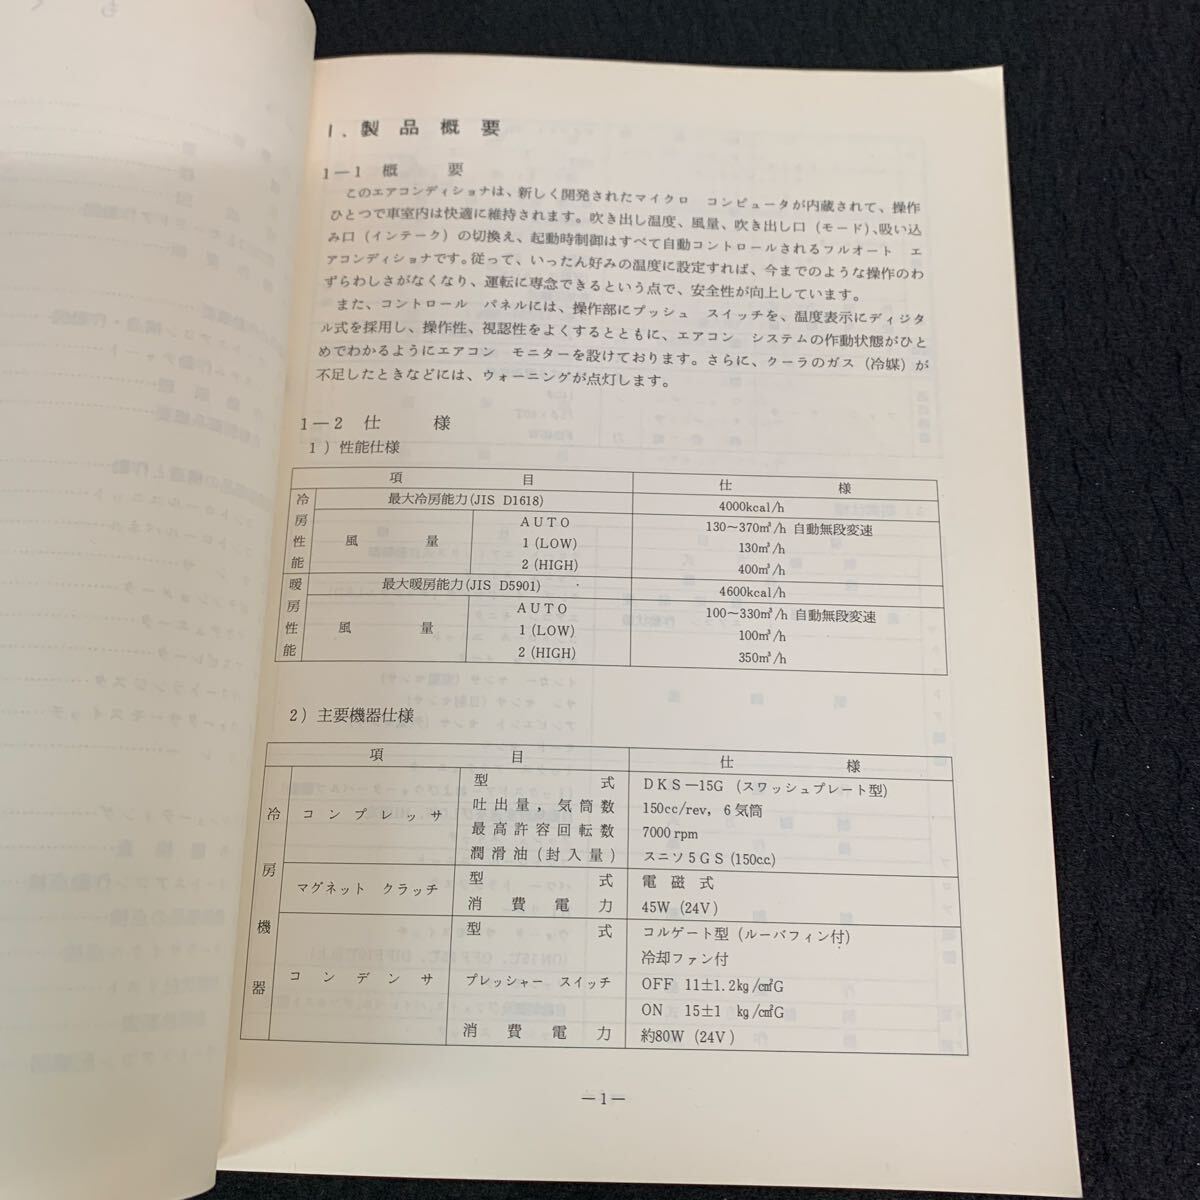 1. 製品概要
1−1 概要
このエアコンディショナは、新しく開発されたマイクロ コンピュータが内蔵されて、操作
ひとつで車室内は快適に維持されます。吹き出し温度、風量、吹き出し口（モード）、吸い込
み口（インテーク）の切換え、起動時制御はすべて自動コントロールされるフルオート エ
アコンディショナです。従って、いったん好みの温度に設定すれば、今までのような操作のわ
ずらわしさがなくなり、運転に専念できるという点で、安全性が向上しています。
また、コントロール パネルには、操作部にプッシュ スイッチを、温度表示にディジタ
ル式を採用し、操作性、視認性をよくするとともに、エアコン システムの作動状態がひと
めでわかるようにエアコン モニターを設けております。さらに、クーラのガス（冷媒）が
不足したときなどには、ウォーニングが点灯します。
1−2 仕様
1）性能仕様
項目 仕様
冷房性能 最大冷房能力(JIS D1618) 4000kcal/h
風量 AUTO 130～370㎥/h 自動無段変速
1 (LOW) 130㎥/h
2 (HIGH) 400㎥/h
暖房性能 最大暖房能力(JIS D5901) 4600kcal/h
風量 AUTO 100～330㎥/h 自動無段変速
1 (LOW) 100㎥/h
2 (HIGH) 350㎥/h
2）主要機器仕様
項目 仕様
冷房機器 コンプレッサ 型式 DKS−15G (スワッシュプレート型)
吐出量, 気筒数 150cc/rev, 6気筒
最高許容回転数 7000rpm
潤滑油(封入量) スニソ5GS(150c.c.)
マグネット クラッチ 型式 電磁式
消費電力 45W (24V)
コンデンサ 型式 コルゲート型 (ルーバフィン付)
冷却ファン付
プレッシャー スイッチ OFF 11±1.2㎏/㎠G
ON 15±1 ㎏/㎠G
消費電力 約80W (24V)
−1−